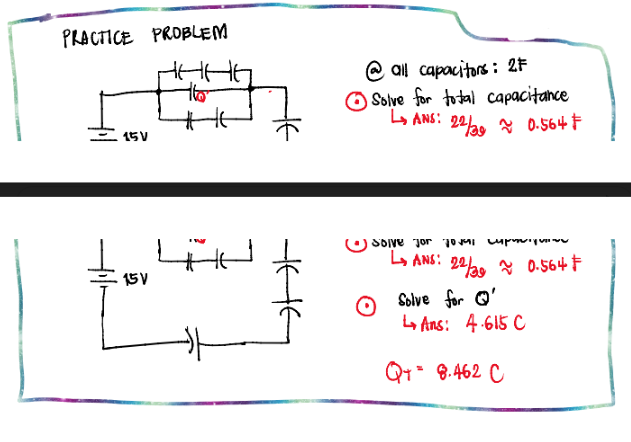 PRACTICE PROBLEM
@ all capacitors: 2F
Solve for total capacitance
↳ Ans: 22/39 ≈ 0.564 F
Q'
15V
Solve for total capacitance
↳ Ans: 22/39 ≈ 0.564 F
15V
Solve for Q'
↳ Ans: 4.615 C
QT = 8.462 C